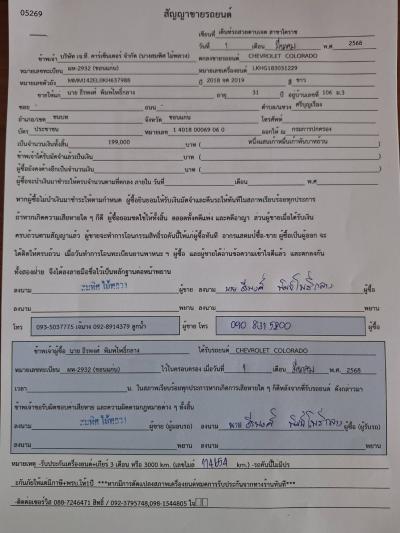 05269
สัญญาขายรถยนต์
เขียนที่ เต็นท์รถสวยตาบเจต สาขาโคราช
วันที่ 1 เดือน มีนาคม พ.ศ. 2568
ข้าพเจ้า บริษัท เจ.ที. คาร์เซ็นเตอร์ จำกัด ตกลงขายรถยนต์ CHEVROLET COLORADO
หมายเลขทะเบียน ผท-2932 (ขอนแก่น) หมายเลขเครื่องยนต์ LKHG183031229
หมายเลขตัวถัง ปี 2018 จดฯ 2019 สี ขาว
ขายให้แก่ นาย ธีรพงศ์ พิมพ์โพธิ์กลาง อายุ 31 ปี อยู่บ้านเลขที่ 106 ม.3
ซอย - ถนน - ตำบล/แขวง ศรีบุญเรือง
อำเภอ/เขต ชนบท จังหวัด ขอนแก่น โทรศัพท์
บัตร ประชาชน หมายเลข 1 4018 00069 06 0 ออกให้ ณ กรมการปกครอง
เป็นจำนวนเงินทั้งสิ้น 199,000 บาท (หนึ่งแสนเก้าหมื่นเก้าพันบาทถ้วน)
ข้าพเจ้าได้รับมัดจำแล้วเป็นเงิน บาท ( )
ผู้ซื้อยังคงค้างอีกเป็นจำนวนเงิน บาท ( )
ผู้ซื้อจะนำเงินมาชำระให้ครบจำนวนตามที่ตกลง ภายใน วันที่ เดือน พ.ศ.
หากผู้ซื้อไม่นำเงินมาชำระให้ตามกำหนด ผู้ซื้อยินยอมให้รับเงินมัดจำและคืนรถให้ทันทีในสภาพเรียบร้อยทุกประการ
ถ้าหากเกิดความเสียหายใด ๆ ก็ดี ผู้ซื้อยอมชดใช้ให้ทั้งสิ้น ตลอดทั้งคดีแพ่ง และคดีอาญา ส่วนผู้ขายเมื่อได้รับเงิน
ครบถ้วนตามสัญญาแล้ว ผู้ขายจะทำการโอนกรรมสิทธิ์รถคันนี้ให้แก่ผู้ซื้อทันที อากรแสตมป์ซื้อ-ขาย ผู้ซื้อเป็นผู้ออก จะ
ได้คิดให้ครบถ้วน เมื่อวันทำการโอนทะเบียนยานพาหนะ ฯ ผู้ซื้อ และผู้ขายได้อ่านข้อความเข้าใจดีแล้ว และตกลงกัน
ทั้งสองฝ่าย จึงได้ลงลายมือชื่อไว้เป็นหลักฐานต่อหน้าพยาน
ลงนาม ผู้ขาย ลงนาม ผู้ซื้อ
ลงนาม พยาน ลงนาม พยาน
โทร 093-5037775 092-8914379 ลูกน้ำ ผู้ขาย โทร 090 8315800 ผู้ซื้อ
ข้าพเจ้าผู้ซื้อ นาย ธีรพงศ์ พิมพ์โพธิ์กลาง ได้รับรถยนต์ CHEVROLET COLORADO
หมายเลขทะเบียน ผท-2932 (ขอนแก่น) ไว้ในครอบครอง เมื่อวันที่ 1 เดือน มีนาคม พ.ศ. 2568
เวลา น. ในสภาพเรียบร้อยทุกประการหากเกิดการเสียหายใด ๆ ก็ดีหลังจากที่รับรถยนต์ ดังกล่าวมา
ข้าพเจ้าขอรับผิดชอบค่าเสียหาย และความผิดตามกฎหมายต่าง ๆ ทั้งสิ้น
ลงนาม ผู้ขาย (ผู้มอบรถ) ลงนาม ผู้ซื้อ (ผู้รับรถ)
ลงนาม พยาน ลงนาม พยาน
หมายเหตุ -รับประกันเครื่องยนต์+เกียร์ 3 เดือน หรือ 3000 km. (เลขไมล์ km.) -รถคันนี้ไม่มีปร
ะกันภัยให้แต่มีภาษี+พรบ.ให้1ปี ***หากมีการดัดแปลงสภาพเครื่องยนต์หมดการรับประกันจากทางร้านทันที***
-ติดต่อเซอร์วิส 088-7246471 สิทธิ์ / 092-3795748,098-1544805